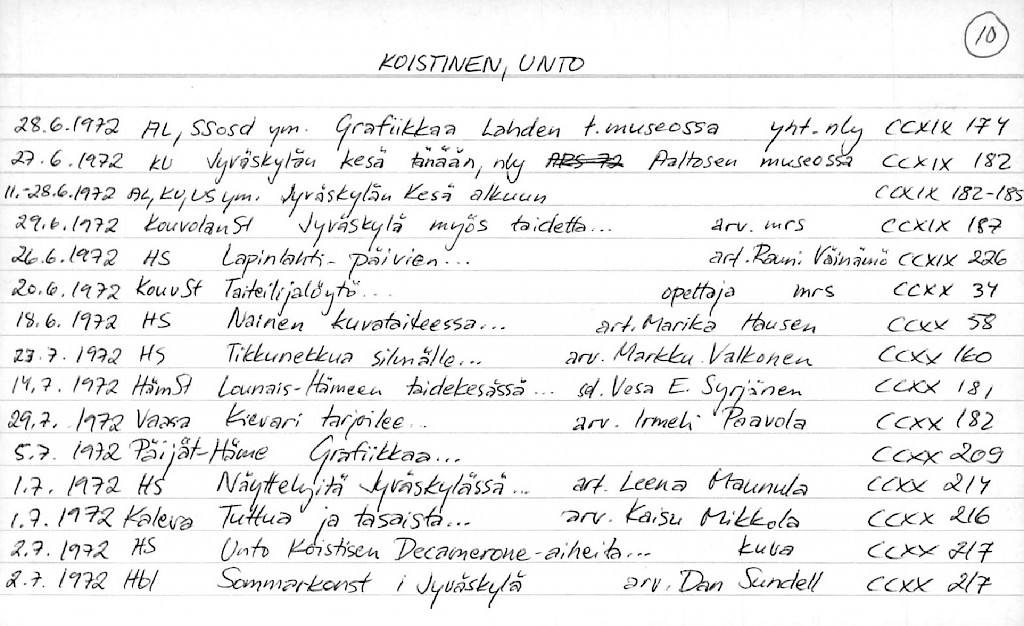 10
KOISTINEN, UNTO
28.6.1972 AL, SSosd ym. Grafiikkaa Lahden t.museossa yht.nly CCXIX 174
27.6.1972 KU Jyväskylän kesä tänään, nly ARS 72 Aaltosen museossa CCXIX 182
11.-28.6.1972 AL, KU, US ym. Jyväskylän Kesä alkuun CCXIX 182-185
29.6.1972 KouvolanSt Jyväskylä myös taidetta... arv. mrs CCXIX 187
26.6.1972 HS Lapinlahti-päivien... art. Rauni Väinämö CCXIX 226
20.6.1972 KouvSt Taiteilijalöytö... opettaja mrs CCXX 34
18.6.1972 HS Nainen kuvataiteessa... art. Marika Hausen CCXX 58
23.7.1972 HS Tikkunekkua silmälle... arv. Markku Valkonen CCXX 160
14.7.1972 HämSt Lounais-Hämeen taidekesässä... sd. Vesa E. Syrjänen CCXX 181
29.7.1972 Vaasa Kievari tarjoilee... arv. Irmeli Paavola CCXX 182
5.7.1972 Päijät-Häme Grafiikkaa... CCXX 209
1.7.1972 HS Näyttelyitä Jyväskylässä... art. Leena Maunula CCXX 214
1.7.1972 Kaleva Tuttua ja tasaista... arv. Kaisu Mikkola CCXX 216
2.7.1972 HS Unto Koistisen Decamerone-aiheita... kuva CCXX 217
2.7.1972 Hbl Sommarkonst i Jyväskylä arv. Dan Sundell CCXX 217